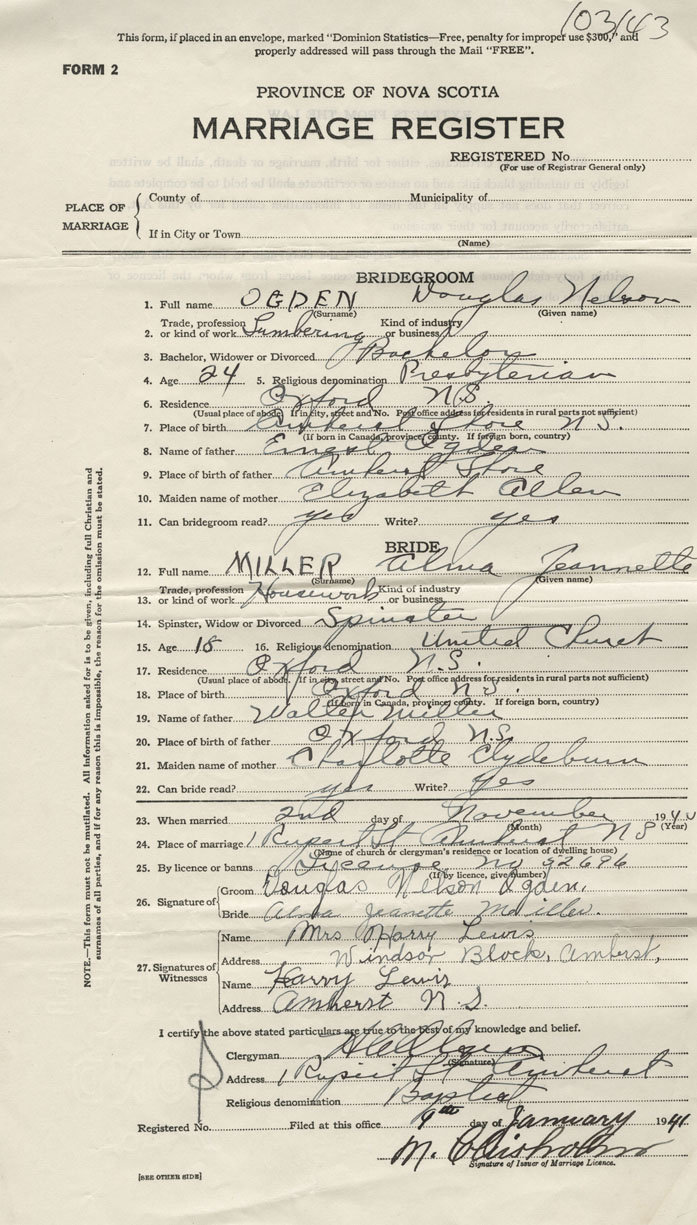 103143
This form, if placed in an envelope, marked "Dominion Statistics—Free, penalty for improper use $300," and
properly addressed will pass through the Mail "FREE".
FORM 2
PROVINCE OF NOVA SCOTIA
MARRIAGE REGISTER
REGISTERED No.
(For use of Registrar General only)
PLACE OF MARRIAGE
County of Municipality of
If in City or Town
(Name)
BRIDEGROOM
1. Full name OGDEN Douglas Nelson
(Surname) (Given name)
2. Trade, profession or kind of work Lumbering Kind of industry or business
3. Bachelor, Widower or Divorced Bachelor
4. Age 24 5. Religious denomination Presbyterian
6. Residence Oxford N.S.
(Usual place of abode. If in city, street and No. Post office address for residents in rural parts not sufficient)
7. Place of birth Amherst Shore N.S.
(If born in Canada, province, county. If foreign born, country)
8. Name of father Ernest Ogden
9. Place of birth of father Amherst Shore
10. Maiden name of mother Elizabeth Allen
11. Can bridegroom read? yes Write? yes
BRIDE
12. Full name MILLER Alma Jeannette
(Surname) (Given name)
13. Trade, profession or kind of work Housework Kind of industry or business
14. Spinster, Widow or Divorced Spinster
15. Age 18 16. Religious denomination United Church
17. Residence Oxford N.S.
(Usual place of abode. If in city, street and No. Post office address for residents in rural parts not sufficient)
18. Place of birth Oxford N.S.
(If born in Canada, province, county. If foreign born, country)
19. Name of father Walter Miller
20. Place of birth of father Oxford N.S.
21. Maiden name of mother Charlotte Clydeburn
22. Can bride read? yes Write? yes
23. When married 2nd day of November 1940
(Month) (Year)
24. Place of marriage 1 Rupert St Amherst N S
(Name of church or clergyman's residence or location of dwelling house)
25. By licence or banns Lycense No 92696
(If by licence, give number)
26. Signature of
Groom Douglas Nelson Ogden.
Bride Alma Jeanette Miller.
27. Signatures of Witnesses
Name Mrs Harry Lewis
Address Windsor Block, Amherst,
Name Harry Lewis
Address Amherst N.S.
I certify the above stated particulars are true to the best of my knowledge and belief.
Clergyman
(Signature)
Address 1 Rupert St Amherst
Religious denomination Baptist
Registered No. Filed at this office 9th day of January 1941
M. Chisholm
Signature of Issuer of Marriage Licence.
[SEE OTHER SIDE]
NOTE.—This form must not be mutilated. All information asked for is to be given, including full Christian and
surnames of all parties, and if for any reason this is impossible, the reason for the omission must be stated.